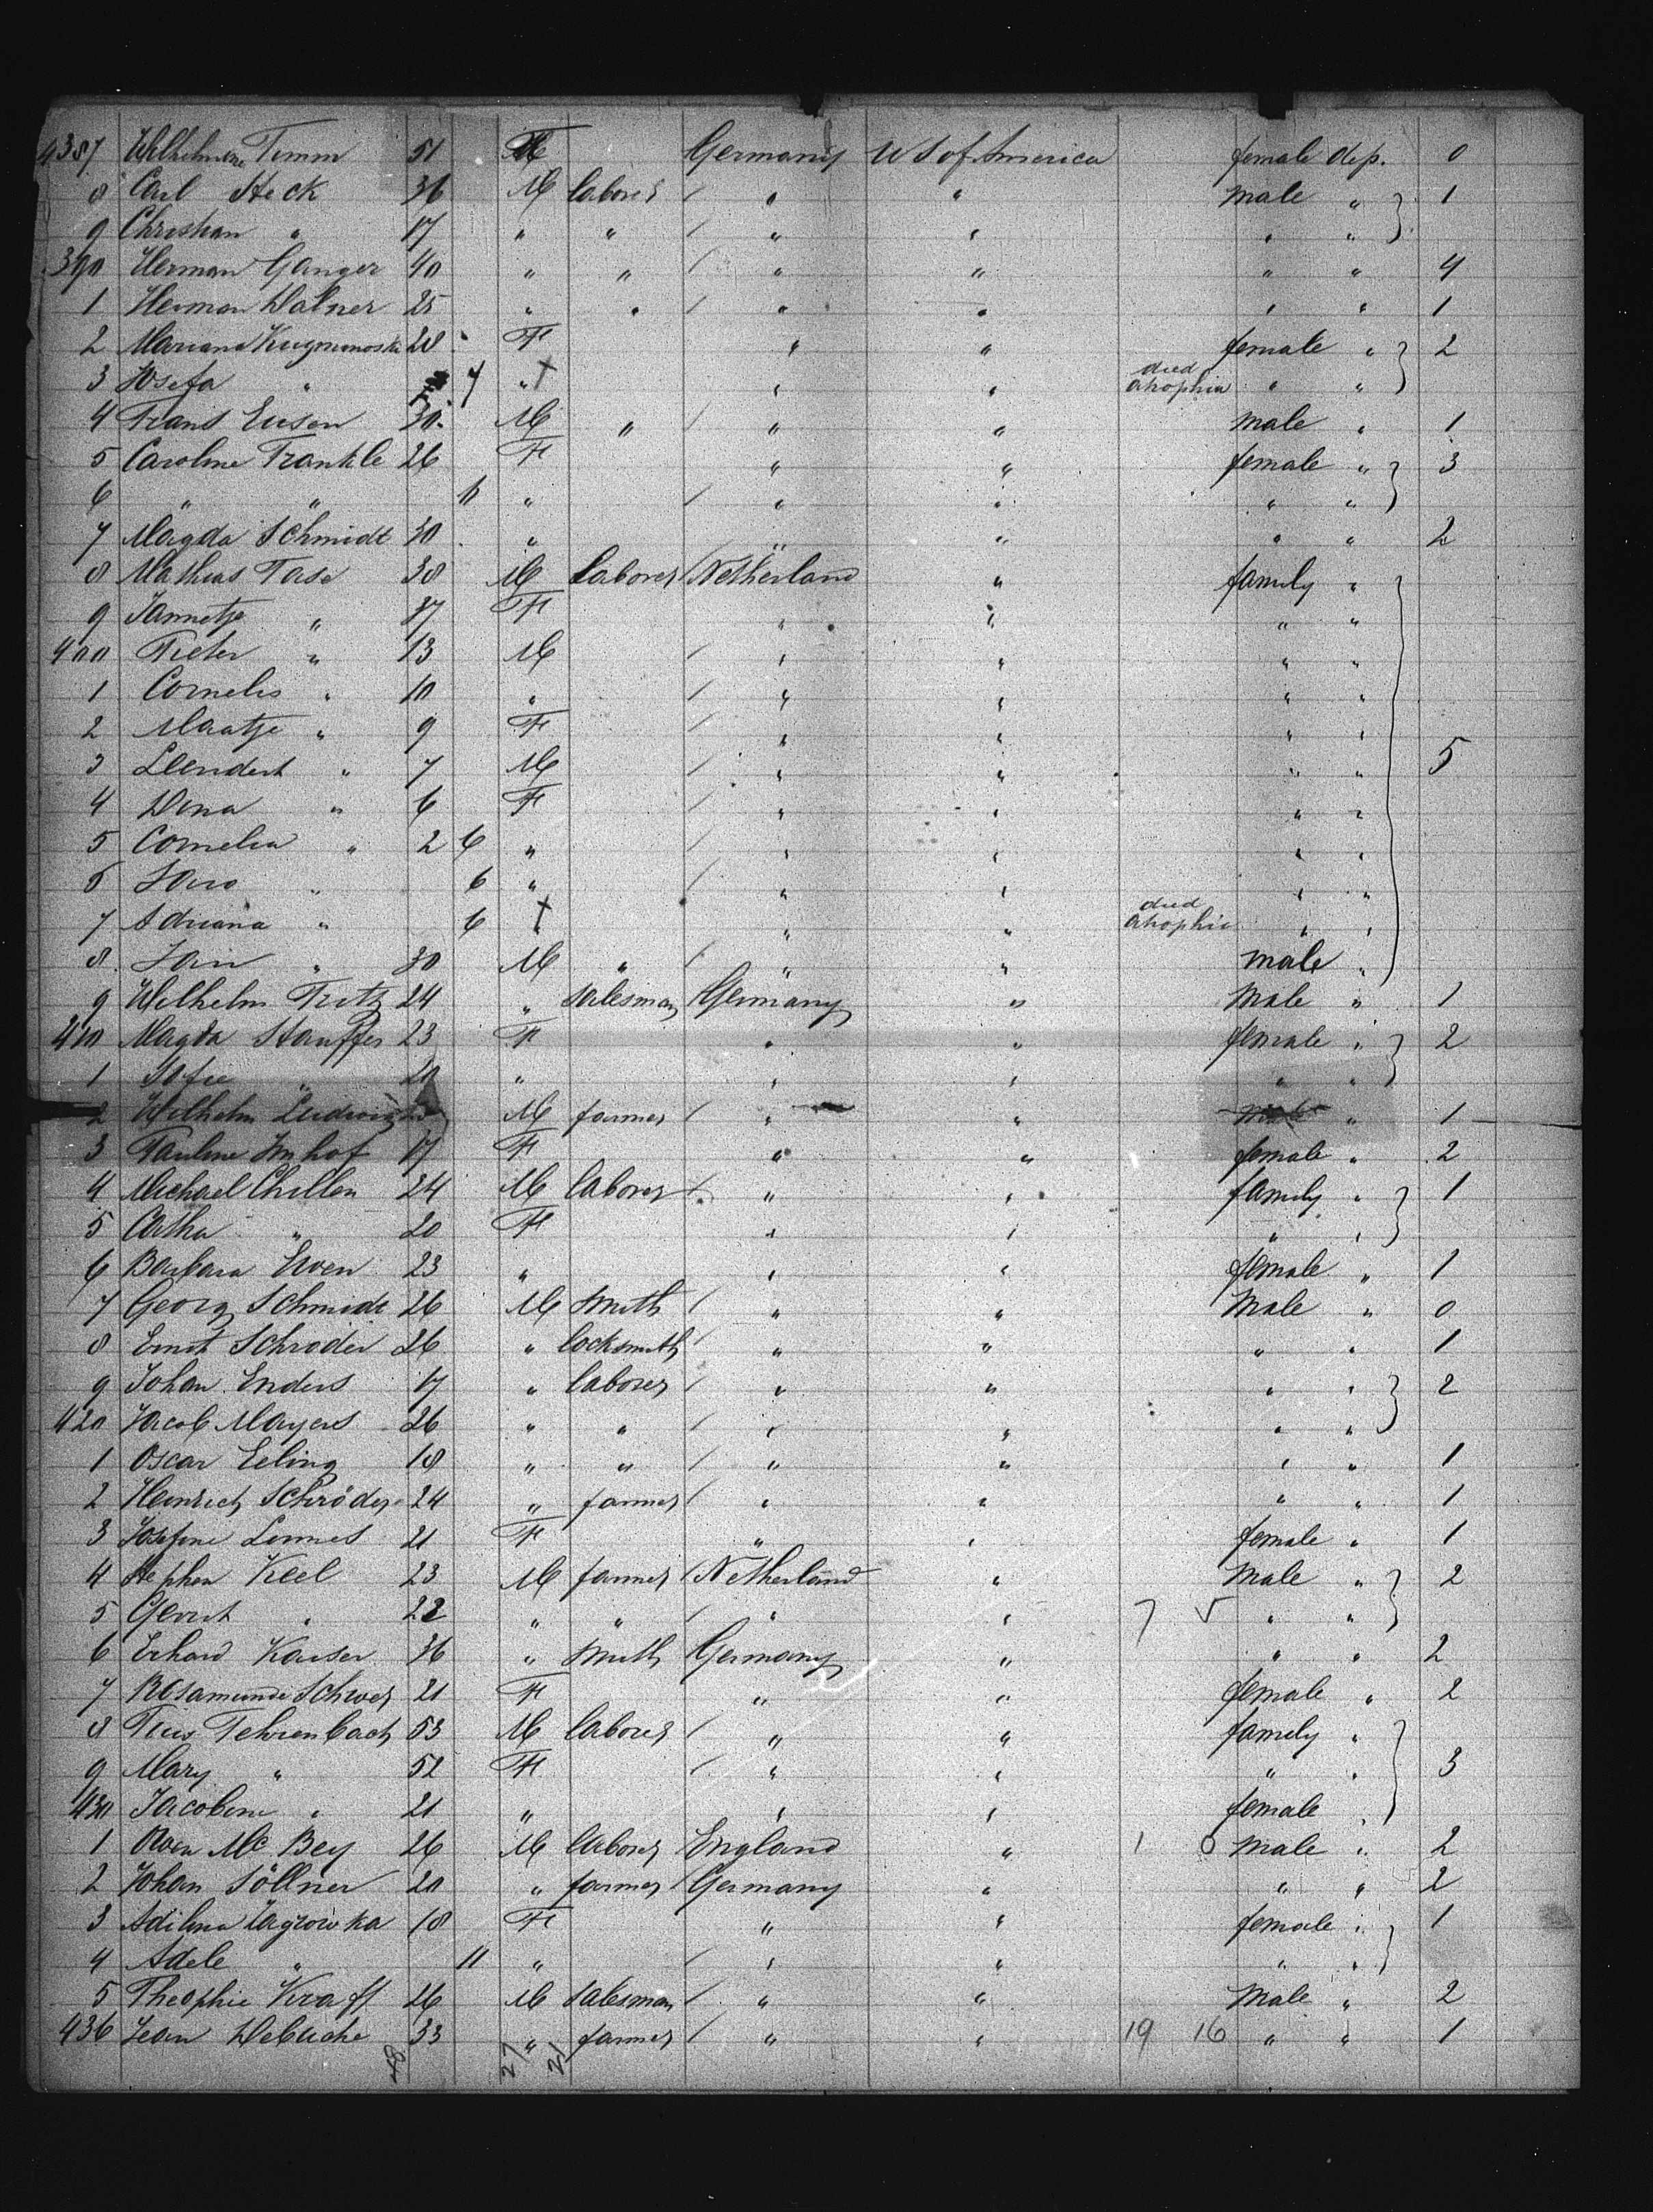 4387 Wilhelmine Timm 51 Germany US of America female dep. 0
8 Carl Steck 36 M laborer / " " male " } 1
9 Christian " 17 " " / " " " "
390 Herman Ganger 40 " " / " " " " 4
1 Herman Walner 25 " " / " " " " 1
2 Mariana 28 F " " female " } 2
3 Josefa " 7 " † " " died atrophia " "
4 Frans Eusen 30 M " / " " male " 1
5 Caroline Frankle 26 F " " female " } 3
6 " " 11 " / " " " "
7 Magda Schmidt 30 " " " " " 2
8 Mathias Tase 38 M laborer / Netherland " family "
9 Jannetje " 37 F " " " "
400 Pieter " 13 M / " " " "
1 Cornelis " 10 " / " " " "
2 Maatje " 9 F / " " " "
3 Leendert " 7 M / " " " " } 5
4 Dina " 6 F / " " " "
5 Cornelia " 2 6 " / " " " "
6 " 6 " / " " " "
7 Adriana " 6 † " " died atrophia " "
8 " 30 M " / " " male "
9 Wilhelm Fritz 24 " salesman Germany " Male " 1
410 Magda Stauffer 23 F " " female " } 2
1 Sofie " 20 " " " " "
2 Wilhelm Ludwig M farmer / " " " 1
3 Pauline Imhof 17 F " " female " 2
4 Michael Chillen 24 M laborer / " " family " } 1
5 Catha " 20 F " " " "
6 Barbara Ewen 23 " " " female " 1
7 Georg Schmidt 26 M smith / " " Male " 0
8 Ernst Schroder 26 " locksmith / " " " " 1
9 Johan Enders 17 " laborer / " " " " } 2
420 Jacob Mayers 26 " " / " " " "
1 Oscar Eeling 18 " " / " " " " 1
2 Heinrich Schröder 24 " farmer / " " " " 1
3 Josefine Lennes 21 F " " female " 1
4 Stephen Keel 23 M farmer / Netherland " Male " } 2
5 Gerrit " 22 " " / " " 7 5 " "
6 Erhard Kaiser 36 " smith Germany " " " 2
7 Rosamunde Schwer 21 F " " female " 2
8 Pius Fehrenbach 53 M laborer / " " family "
9 Mary " 52 F / " " " " } 3
430 Jacobine " 21 " " " female "
1 Owen Mc Bey 26 M laborer England " 1 0 male " 2
2 Johan Söllner 20 " farmer / Germany " " " 2
3 18 F " " female " } 1
4 Adele " 11 " / " " " "
5 Theophie Kraft 26 M salesman / " " Male " 2
436 Jean Debuche 33 " farmer / " " 19 16 " " 1
48 27 21